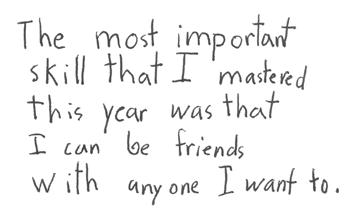 The most important
skill that I mastered
this year was that
I can be friends
with anyone I want to.